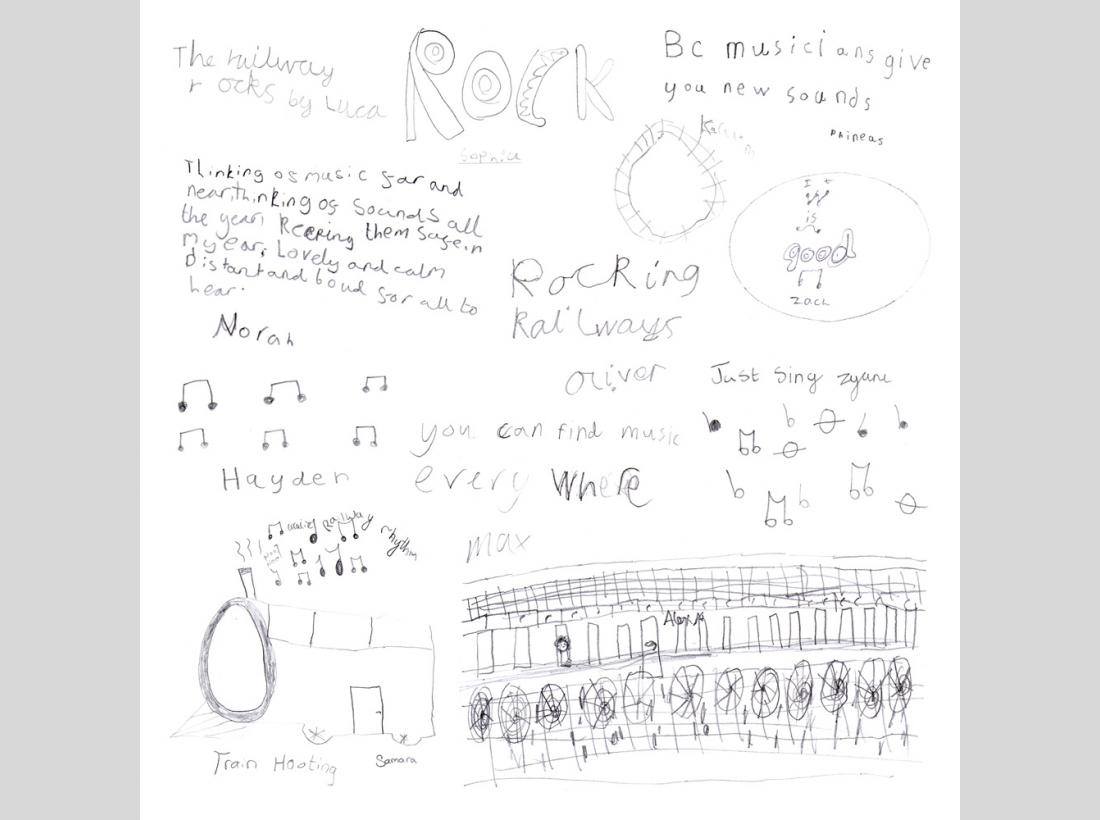 The railway
rocks by Luca
ROCK
Sophia
Bc musicians give
you new sounds
Phineas
Thinking os music sar and
near, thinking os sounds all
the year, Keeping them sase in
my ear, Lovely and calm
Distant and loud sor all to
hear.
Norah
It
is
good
Zach
RocKing
Railways
Oliver
Just Sing zyane
you can find music
every where
max
Hayden
railway rhythm
Alex
Train Hooting
Samara